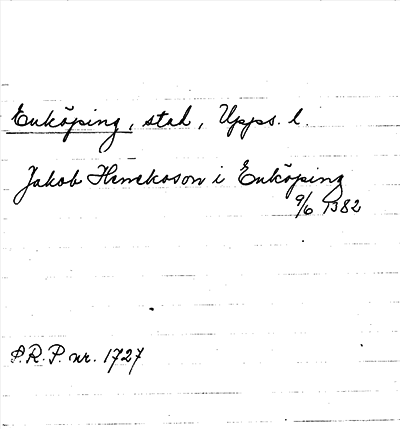 Enköping, stad, Upps. l.
Jakob Hinekoson i Enköping
9/6 1382
S.R.P. nr. 1727